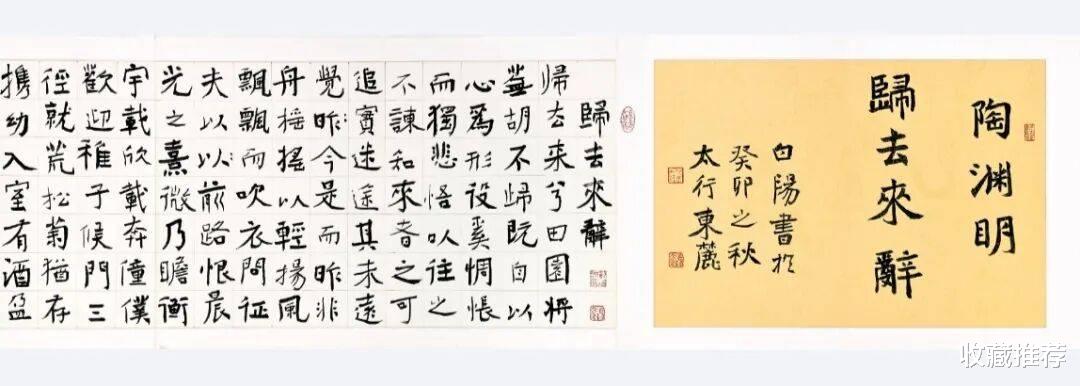 陶渊明
歸去來辭
白陽書於
癸卯之秋
太行東麓
歸去來辭
帰去来兮田園將
蕪胡不歸既自以
心爲形役奚惆悵
而獨悲悟以往之
不諫知來者之可
追實迷途其未遠
覺昨今是而昨非
舟摇摇以輕揚風
飄飄而吹衣問征
夫以以前路恨晨
光之熹微乃瞻衡
宇載欣載奔僮僕
歡迎稚子候門三
徑就荒松菊猶存
携幼入室有酒盈
收藏推荐